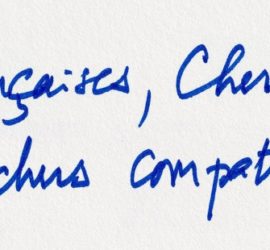 nçaises, Cher
chers compat